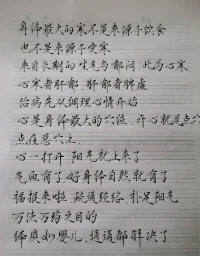 身体最大的寒不是来源于饮食
也不是来源于受寒
来自长期的生气与郁闷，此为心寒
心寒者肝郁，肝郁者脾虚
治病先从调理心情开始
心是身体最大的穴位，开心就是点穴
点在总穴上
心一打开，阳气就上来了
气血有了，好身体自然就有了
福报来啦，疏通经络，补足阳气
万法万药之目的
体质如婴儿，通通都解决了